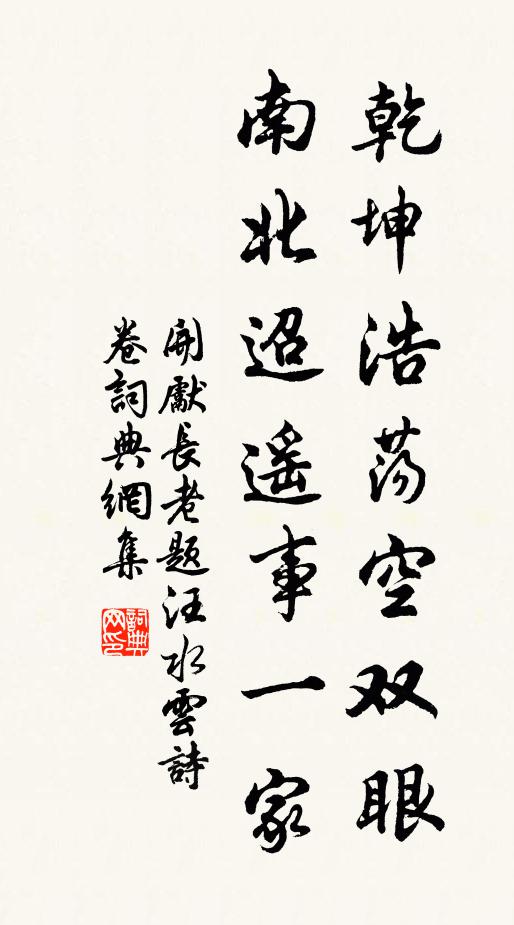 乾坤浩荡空双眼
南北迢遥事一家
開獻長老題汪水雲詩
卷詞典網集
詞典网印